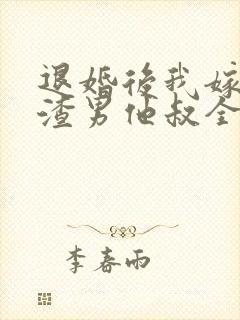 退婚後我嫁
渣男他叔全
李春雨